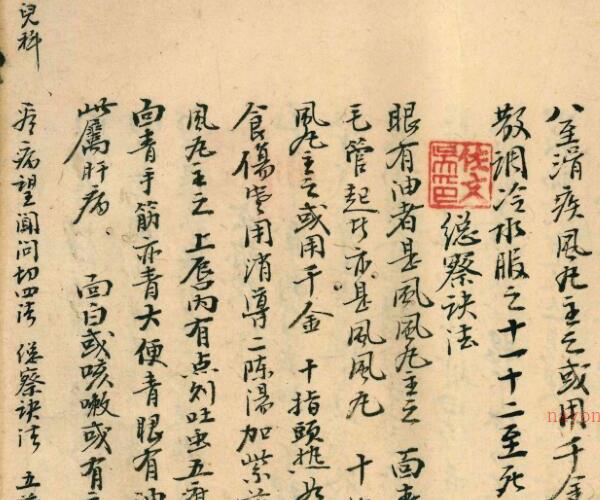 八至清疾風丸主之或用千金
散調冷水服之十一十二至死
總察訣法
眼有油者是風風丸主之 面青
毛管起此亦是風風丸 十
風丸主之或用千金 十指頭熱
食傷當用消導二陳湯加紫
風丸主之 上唇內有点刻吐虫五
面青手筋亦青大便青眼有油
此屬肝病。 面白或咳嗽或有
兒科
疾病望聞問切四法 總察訣法 五